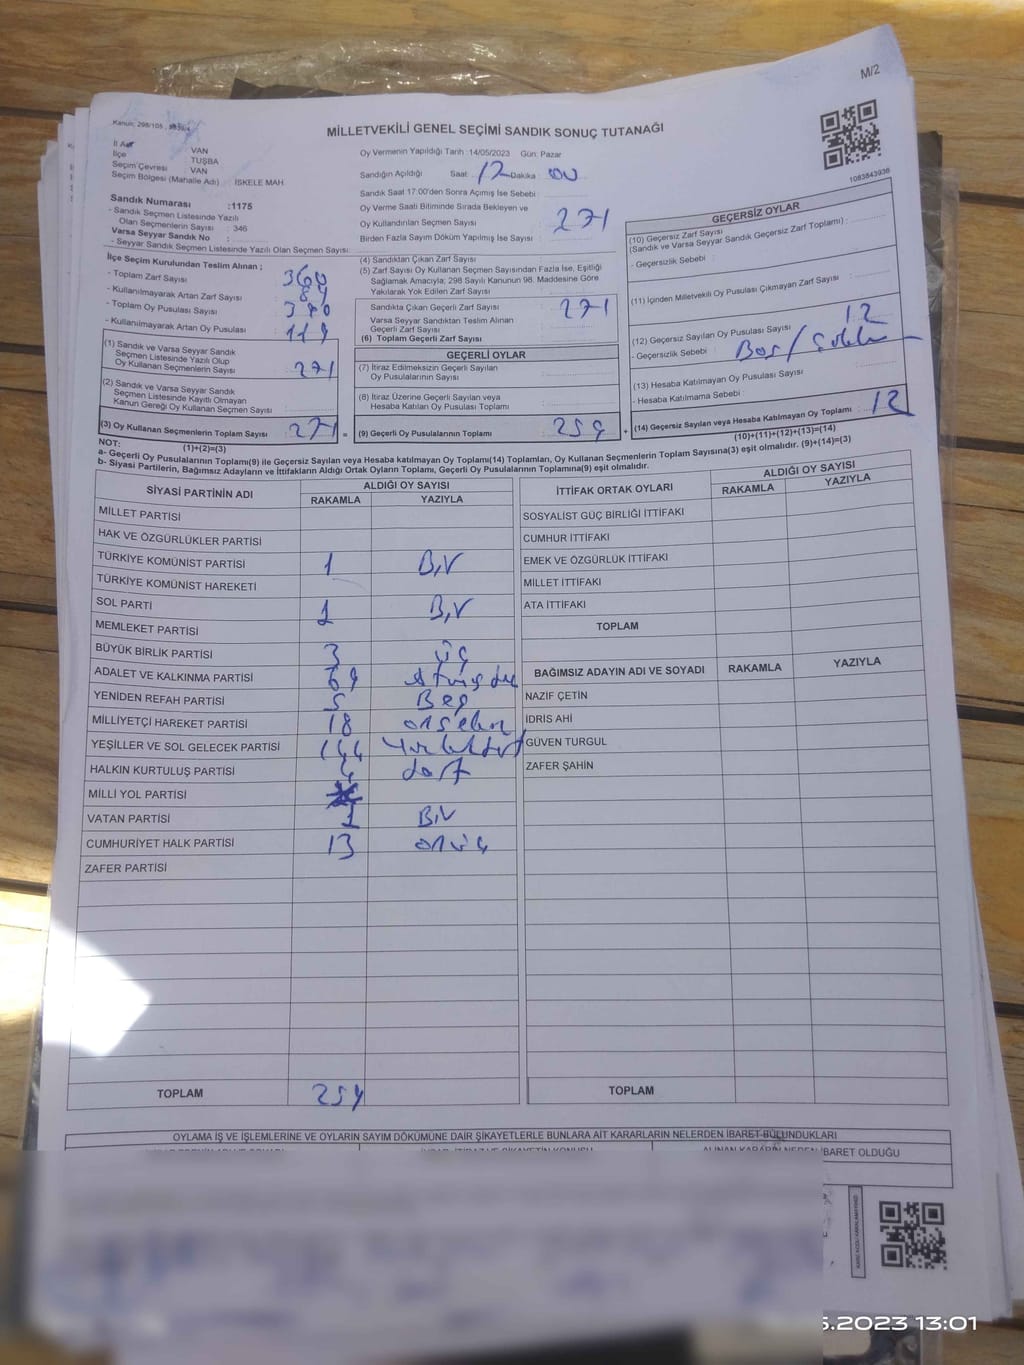 M/2
Kanun: 298/105
MİLLETVEKİLİ GENEL SEÇİMİ SANDIK SONUÇ TUTANAĞI
1083843936
İl Adı : VAN
İlçe : TUŞBA
Seçim Çevresi : VAN
Seçim Bölgesi (Mahalle Adı) : İSKELE MAH.
Sandık Numarası :1175
- Sandık Seçmen Listesinde Yazılı
Olan Seçmenlerin Sayısı : 346
Varsa Seyyar Sandık No :
- Seyyar Sandık Seçmen Listesinde Yazılı Olan Seçmen Sayısı:
Oy Vermenin Yapıldığı Tarih :14/05/2023 Gün: Pazar
Sandığın Açıldığı Saat: 17 Dakika: 00
Sandık Saat 17:00'den Sonra Açımış İse Sebebi :
Oy Verme Saati Bitiminde Sırada Bekleyen ve
Oy Kullandırılan Seçmen Sayısı : 271
Birden Fazla Sayım Döküm Yapılmış İse Sayısı :
İlçe Seçim Kurulundan Teslim Alınan ;
- Toplam Zarf Sayısı :
- Kullanılmayarak Artan Zarf Sayısı :
- Toplam Oy Pusulası Sayısı :
- Kullanılmayarak Artan Oy Pusulası : 119
(1) Sandık ve Varsa Seyyar Sandık
Seçmen Listesinde Yazılı Olup
Oy Kullanan Seçmenlerin Sayısı : 271
(2) Sandık ve Varsa Seyyar Sandık
Seçmen Listesinde Kayıtlı Olmayan
Kanun Gereği Oy Kullanan Seçmen Sayısı :
(3) Oy Kullanan Seçmenlerin Toplam Sayısı : 271 =
(1)+(2)=(3)
(4) Sandıktan Çıkan Zarf Sayısı :
(5) Zarf Sayısı Oy Kullanan Seçmen Sayısından Fazla İse, Eşitliği
Sağlamak Amacıyla; 298 Sayılı Kanunun 98. Maddesine Göre
Yakılarak Yok Edilen Zarf Sayısı :
Sandıkta Çıkan Geçerli Zarf Sayısı : 271
Varsa Seyyar Sandıktan Teslim Alınan
Geçerli Zarf Sayısı :
(6) Toplam Geçerli Zarf Sayısı :
GEÇERLİ OYLAR
(7) İtiraz Edilmeksizin Geçerli Sayılan
Oy Pusulalarının Sayısı :
(8) İtiraz Üzerine Geçerli Sayılan veya
Hesaba Katılan Oy Pusulası Toplamı :
(9) Geçerli Oy Pusulalarının Toplamı : 259 +
GEÇERSİZ OYLAR
(10) Geçersiz Zarf Sayısı
(Sandık ve Varsa Seyyar Sandık Geçersiz Zarf Toplamı) :
- Geçersizlik Sebebi :
(11) İçinden Milletvekili Oy Pusulası Çıkmayan Zarf Sayısı :
(12) Geçersiz Sayılan Oy Pusulası Sayısı : 12
- Geçersizlik Sebebi : Boş/
(13) Hesaba Katılmayan Oy Pusulası Sayısı :
- Hesaba Katılmama Sebebi :
(14) Geçersiz Sayılan veya Hesaba Katılmayan Oy Toplamı : 12
(10)+(11)+(12)+(13)=(14)
NOT:
a- Geçerli Oy Pusulalarının Toplamı(9) ile Geçersiz Sayılan veya Hesaba katılmayan Oy Toplamı(14) Toplamları, Oy Kullanan Seçmenlerin Toplam Sayısına(3) eşit olmalıdır. (9)+(14)=(3)
b- Siyasi Partilerin, Bağımsız Adayların ve İttifakların Aldığı Ortak Oyların Toplamı, Geçerli Oy Pusulalarının Toplamına(9) eşit olmalıdır.
SİYASİ PARTİNİN ADI ALDIĞI OY SAYISI
RAKAMLA YAZIYLA
MİLLET PARTİSİ
HAK VE ÖZGÜRLÜKLER PARTİSİ
TÜRKİYE KOMÜNİST PARTİSİ 1 Bir
TÜRKİYE KOMÜNİST HAREKETİ
SOL PARTİ 1 Bir
MEMLEKET PARTİSİ
BÜYÜK BİRLİK PARTİSİ 3 üç
ADALET VE KALKINMA PARTİSİ 69
YENİDEN REFAH PARTİSİ 5 Beş
MİLLİYETÇİ HAREKET PARTİSİ 18 onsekiz
YEŞİLLER VE SOL GELECEK PARTİSİ 144
HALKIN KURTULUŞ PARTİSİ 4 dört
MİLLİ YOL PARTİSİ
VATAN PARTİSİ 1 Bir
CUMHURİYET HALK PARTİSİ 13 onüç
ZAFER PARTİSİ
TOPLAM 259
İTTİFAK ORTAK OYLARI ALDIĞI OY SAYISI
RAKAMLA YAZIYLA
SOSYALİST GÜÇ BİRLİĞİ İTTİFAKI
CUMHUR İTTİFAKI
EMEK VE ÖZGÜRLÜK İTTİFAKI
MİLLET İTTİFAKI
ATA İTTİFAKI
TOPLAM
BAĞIMSIZ ADAYIN ADI VE SOYADI RAKAMLA YAZIYLA
NAZİF ÇETİN
İDRİS AHİ
GÜVEN TURGUL
ZAFER ŞAHİN
TOPLAM
OYLAMA İŞ VE İŞLEMLERİNE VE OYLARIN SAYIM DÖKÜMÜNE DAİR ŞİKAYETLERLE BUNLARA AİT KARARLARIN NELERDEN İBARET BULUNDUKLARI
ALINAN KARARIN NEDEN İBARET OLDUĞU
5.2023 13:01